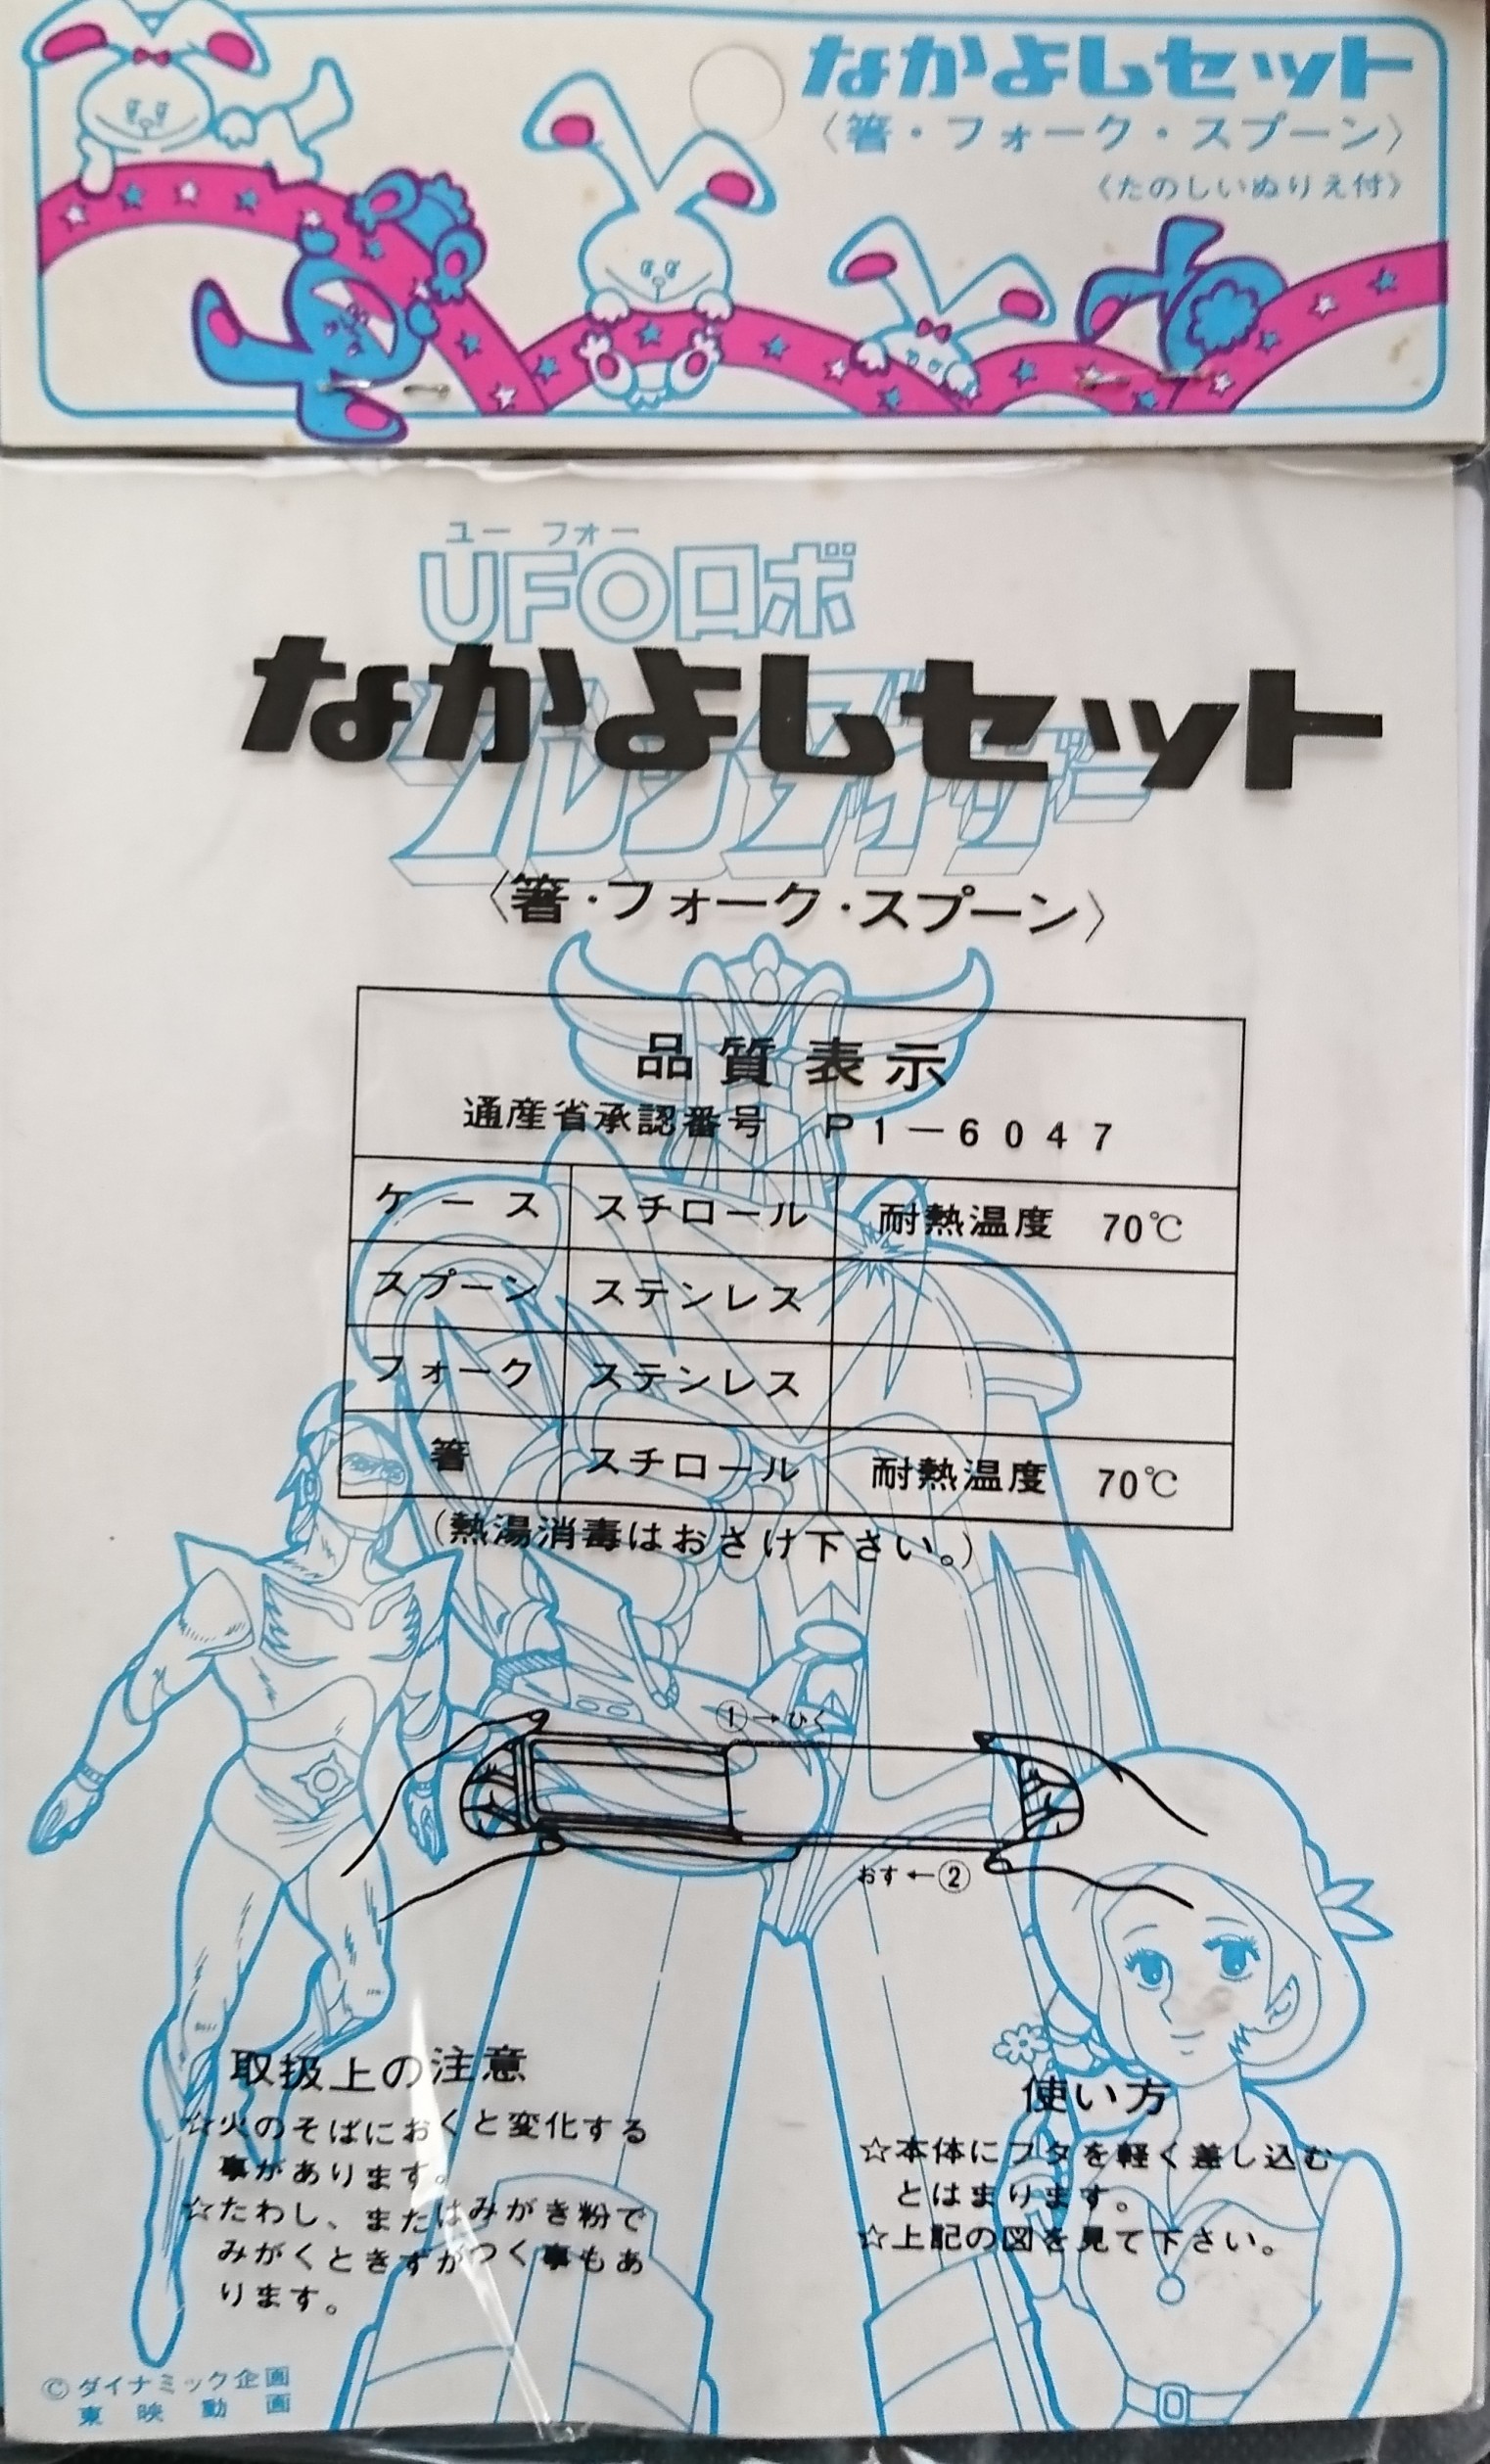 なかよしセット
〈箸・フォーク・スプーン〉
《たのしいぬりえ付》
ユー フォー
UFOロボ
グレンダイザー
なかよしセット
〈箸・フォーク・スプーン〉
品質表示
通産省承認番号 P1-6047
ケース スチロール 耐熱温度 70℃
スプーン ステンレス
フォーク ステンレス
箸 スチロール 耐熱温度 70℃
(熱湯消毒はおさけ下さい。)
①→ひく
おす←②
取扱上の注意
☆火のそばにおくと変化する
事があります。
☆たわし、またはみがき粉で
みがくときずがつく事もあ
ります。
使い方
☆本体にフタを軽く差し込む
とはまります。
☆上記の図を見て下さい。
©ダイナミック企画
東映動画